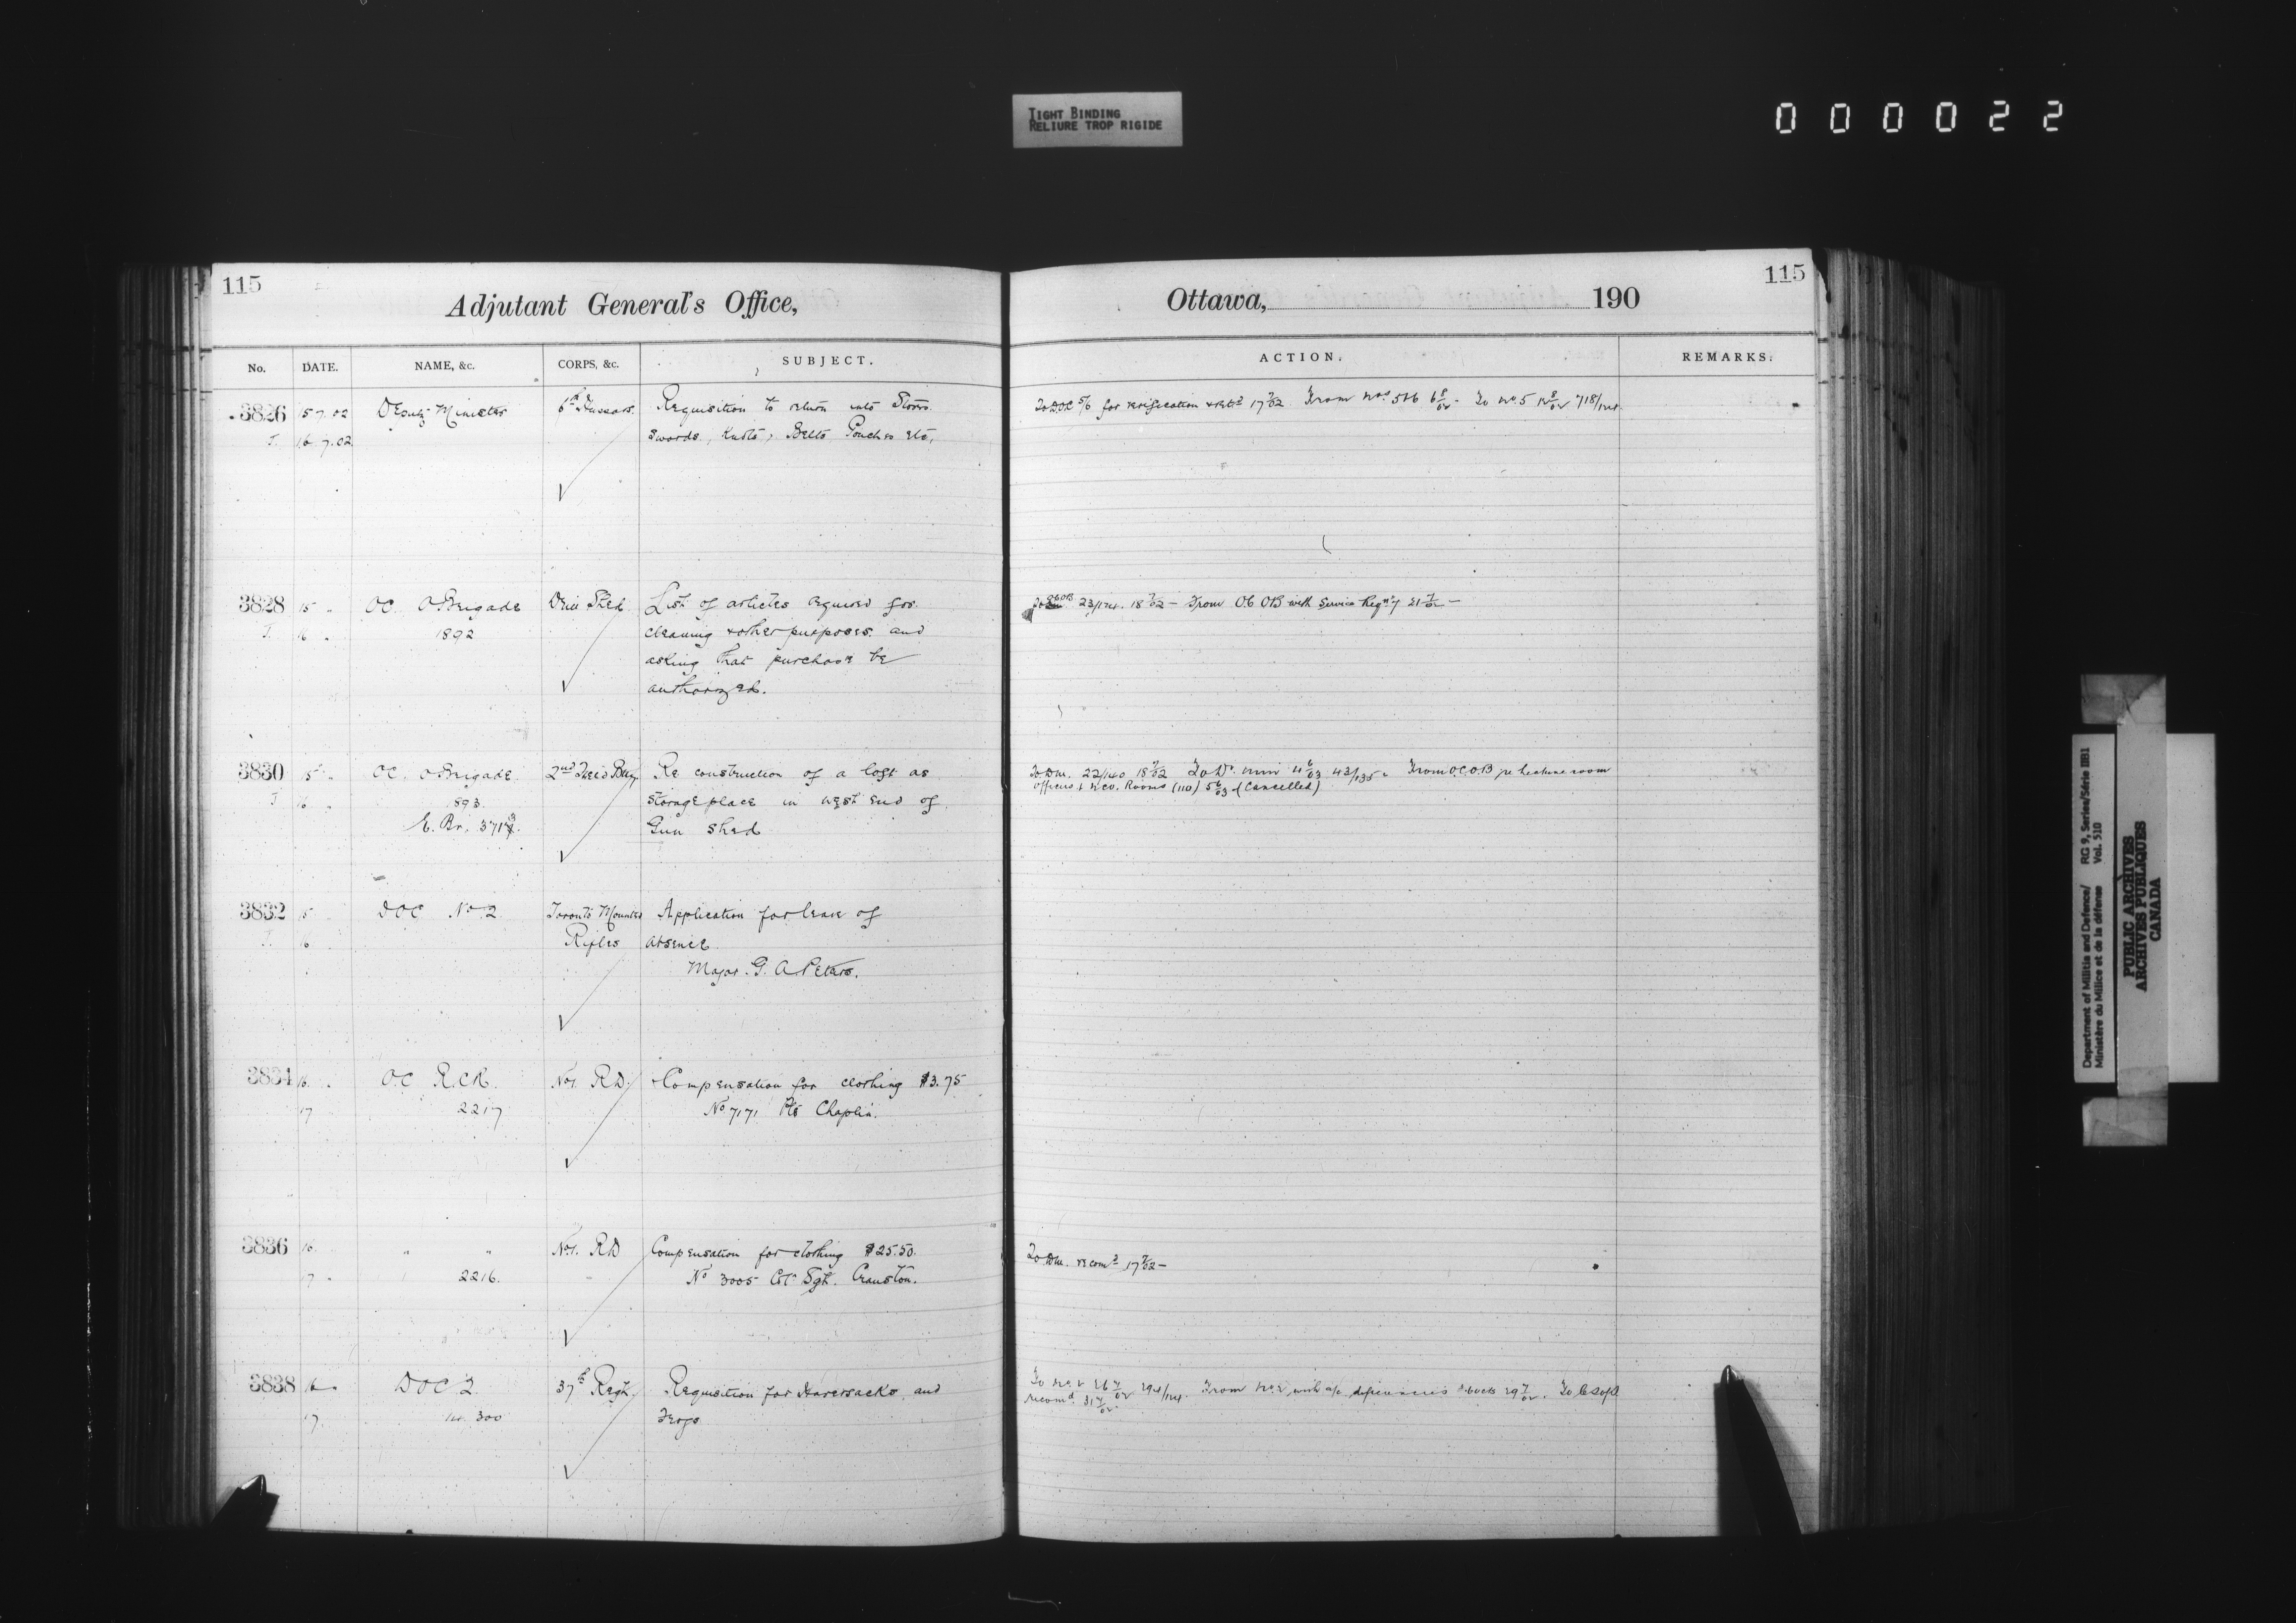 TIGHT BINDING
RELIURE TROP RIGIDE
000022
115
Adjutant General's Office,
No. DATE. NAME, &c. CORPS, &c. SUBJECT.
3826 15 7.02 Deputy Minister 6th Hussars. Requisition to return into Stores
J. 16.7.02 Swords, Belts Pouches etc,
3828 15 " OC. OBrigade Drill Shed. List of articles required for
J. 16 " 1892 cleaning & other purposes and
asking that purchase be
authorized.
3830 15 " OC. OBrigade 2nd Field Baty Re construction of a loft as
J 16 " 1893 storage place in west end of
E. Br. Gun Shed
3832 15 DOC No 2 Toronto Mounted Application for leave of
J. 16 Rifles absence
Major. G. A Peters.
3834 16 " O.C R.C.R. No1. RD. Compensation for clothing $3.75
17 2217 No 7171 Pte Chaplin.
3836 16 " " No1. RD Compensation for clothing $25.50.
17 " 2216. No 3005 Col Sgt. Cranston.
3838 16 " DOC 2. 37th Regt. Requisition for Haversacks and
17. 300 Frogs
115
Ottawa, 190
ACTION. REMARKS.
To DOC for verification 17 7/02 From 6 8/02 - To No. 5
18 7/02 - From OC OB with Service Reqn 21 7/02 -
To Dm. 22/140 18 7/02 To 4 6/03 From O.C.O.B re lecture room
Officers & Rooms (110) 5 6/03 (Cancelled)
To Dm. recomd 17 7/02 -
To No. 2 26 7/02 From No. 2 with deficiencies 29 7/02. To
recomd 31 7/02
Department of Militia and Defence/ RG 9, Series/Série IIB1
Ministère du Milice et de la défense Vol. 510
PUBLIC ARCHIVES
ARCHIVES PUBLIQUES
CANADA